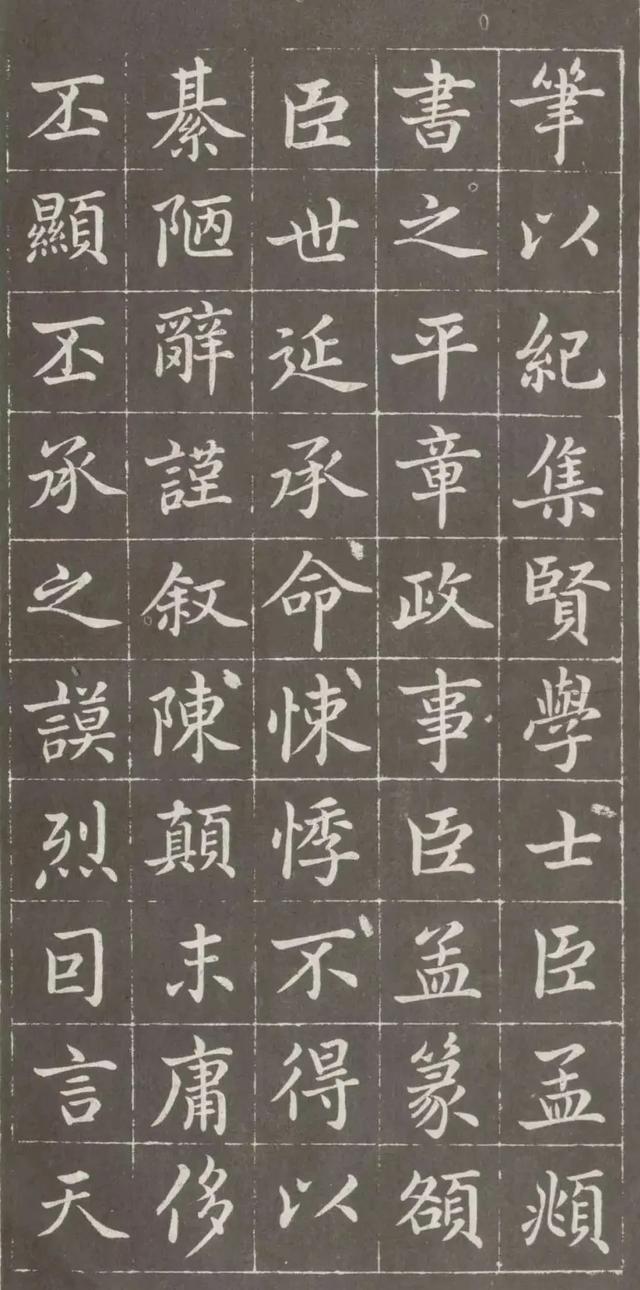 筆以紀集賢學士臣孟頫
書之平章政事臣孟篆額
臣世延承命悚悸不得以
綦陋辭謹叙陳顛末庸侈
丕顯丕承之謨烈囙言天